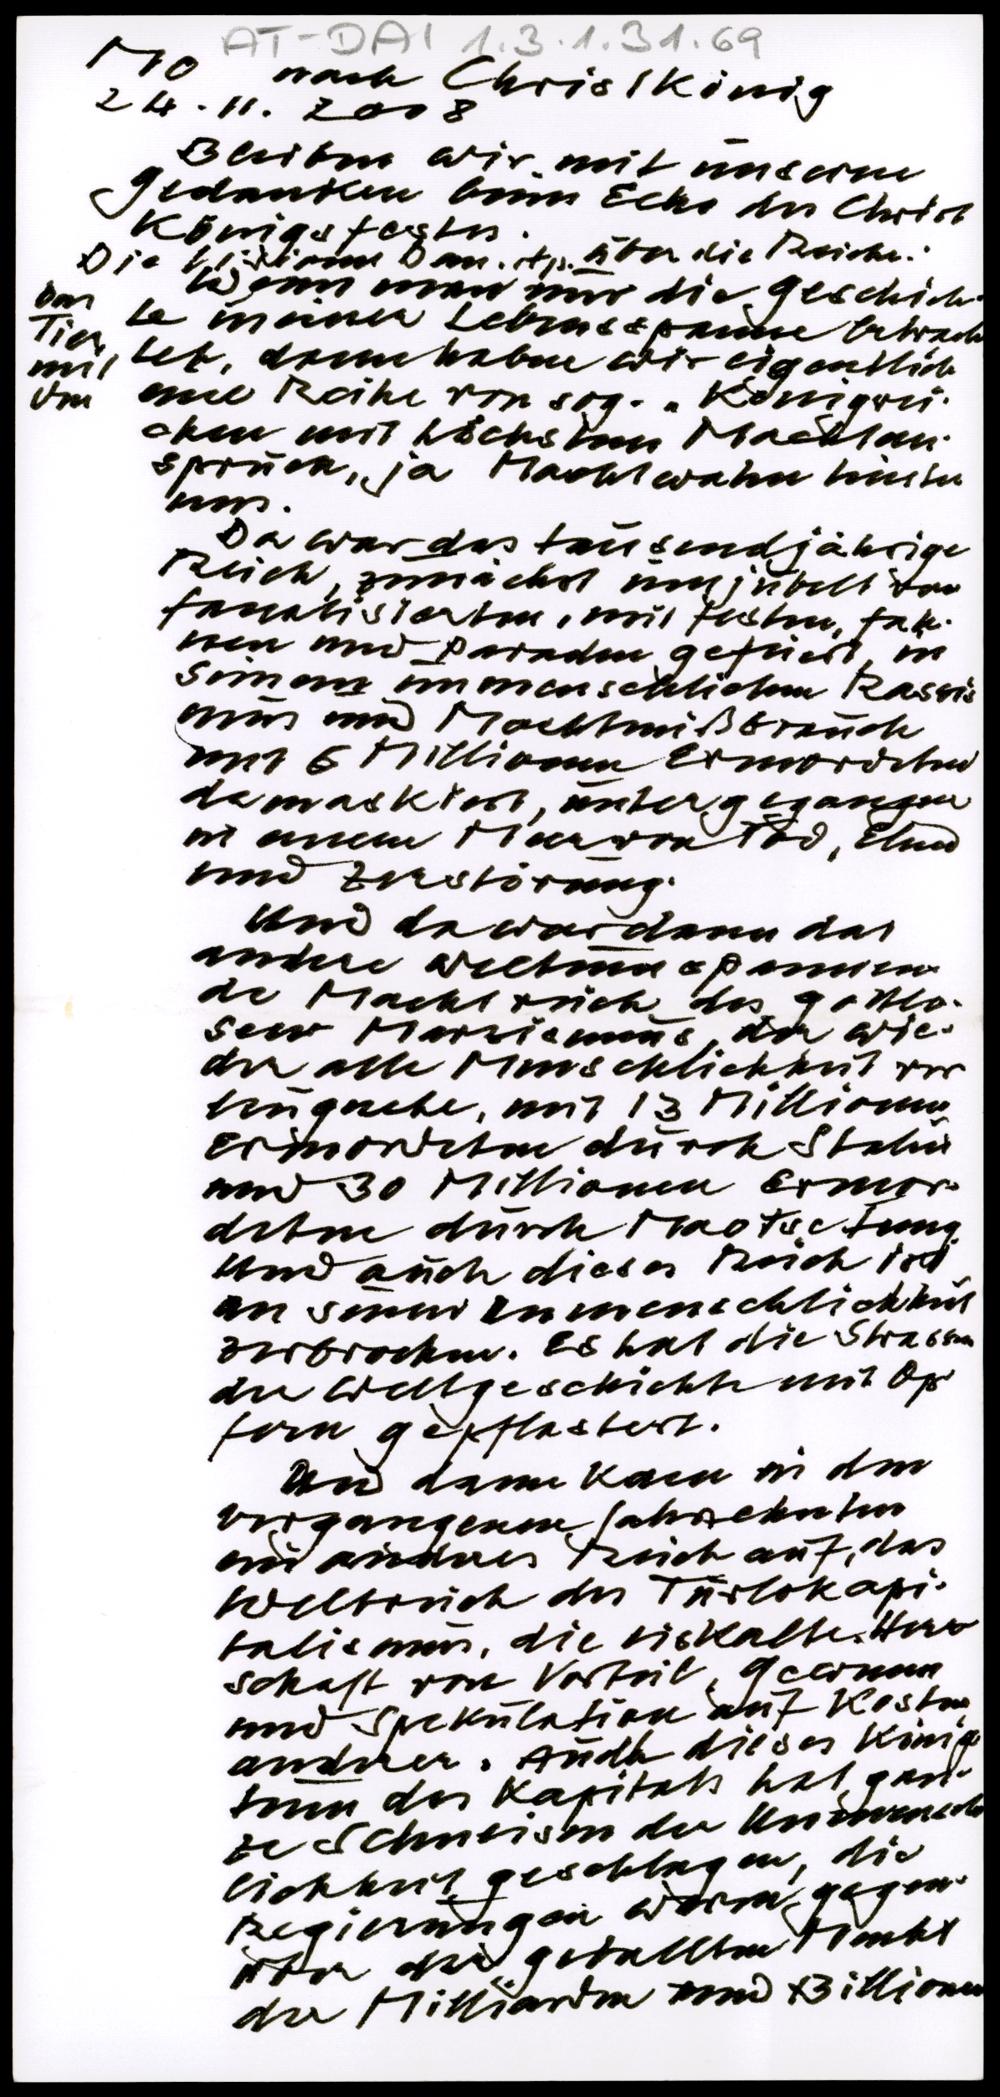 AT-DAI 1.3.1.31.69
Mo nach Christkönig
24.11.2008
Bleiben wir mit unseren
Gedanken beim Echo des Christ
Königsfestes.
Die Dan. über die Reiche.
Wenn man nur die Geschich-
te meiner Lebensspanne betrach
das
Tier
mit
den
tet, dann haben wir eigentlich
eine Reihe von sog. "Königrei-
chen mit höchstem Machtan-
spruch, ja Machtwahn hinter
uns.
Da war das tausendjährige
Reich, zunächst umjubelt von
fanatisierten, mit Festen, Fah-
nen und Paraden gefeiert, in
seinem unmenschlichen Rassis
mus und Machtmißbrauch
mit 6 Millionen Ermordeten
demaskiert, untergegangen
in einem Meer von Tod, Elend
und Zerstörung.
Und da war dann das
andere weltumspannen-
de Machtreich des gottlo-
sen Marxismus, der wie-
der alle Menschlichkeit ver
leugnete, mit 13 Millionen
Ermordeten durch Stalin
und 30 Millionen Ermor-
deten durch Maotsetung
Und auch dieses Reich ist
an seiner Unmenschlichkeit
zerbrochen. Es hat die Strassen
der Weltgeschichte mit Op
fern gepflastert.
Und dann kam in den
vergangenen Jahrzehnten
ein anderes Reich auf, das
Weltreich des Turbokapi-
talismus, die eiskalte Herr
schaft von Vorteil, Gewinn
und Spekulation auf Kosten
anderer. Auch dieses König
tum des Kapitals hat gan-
ze Schneisen der Unmensch
lichkeit geschlagen, die
Regierungen waren gegen-
über der geballten Macht
der Milliarden und Billionen